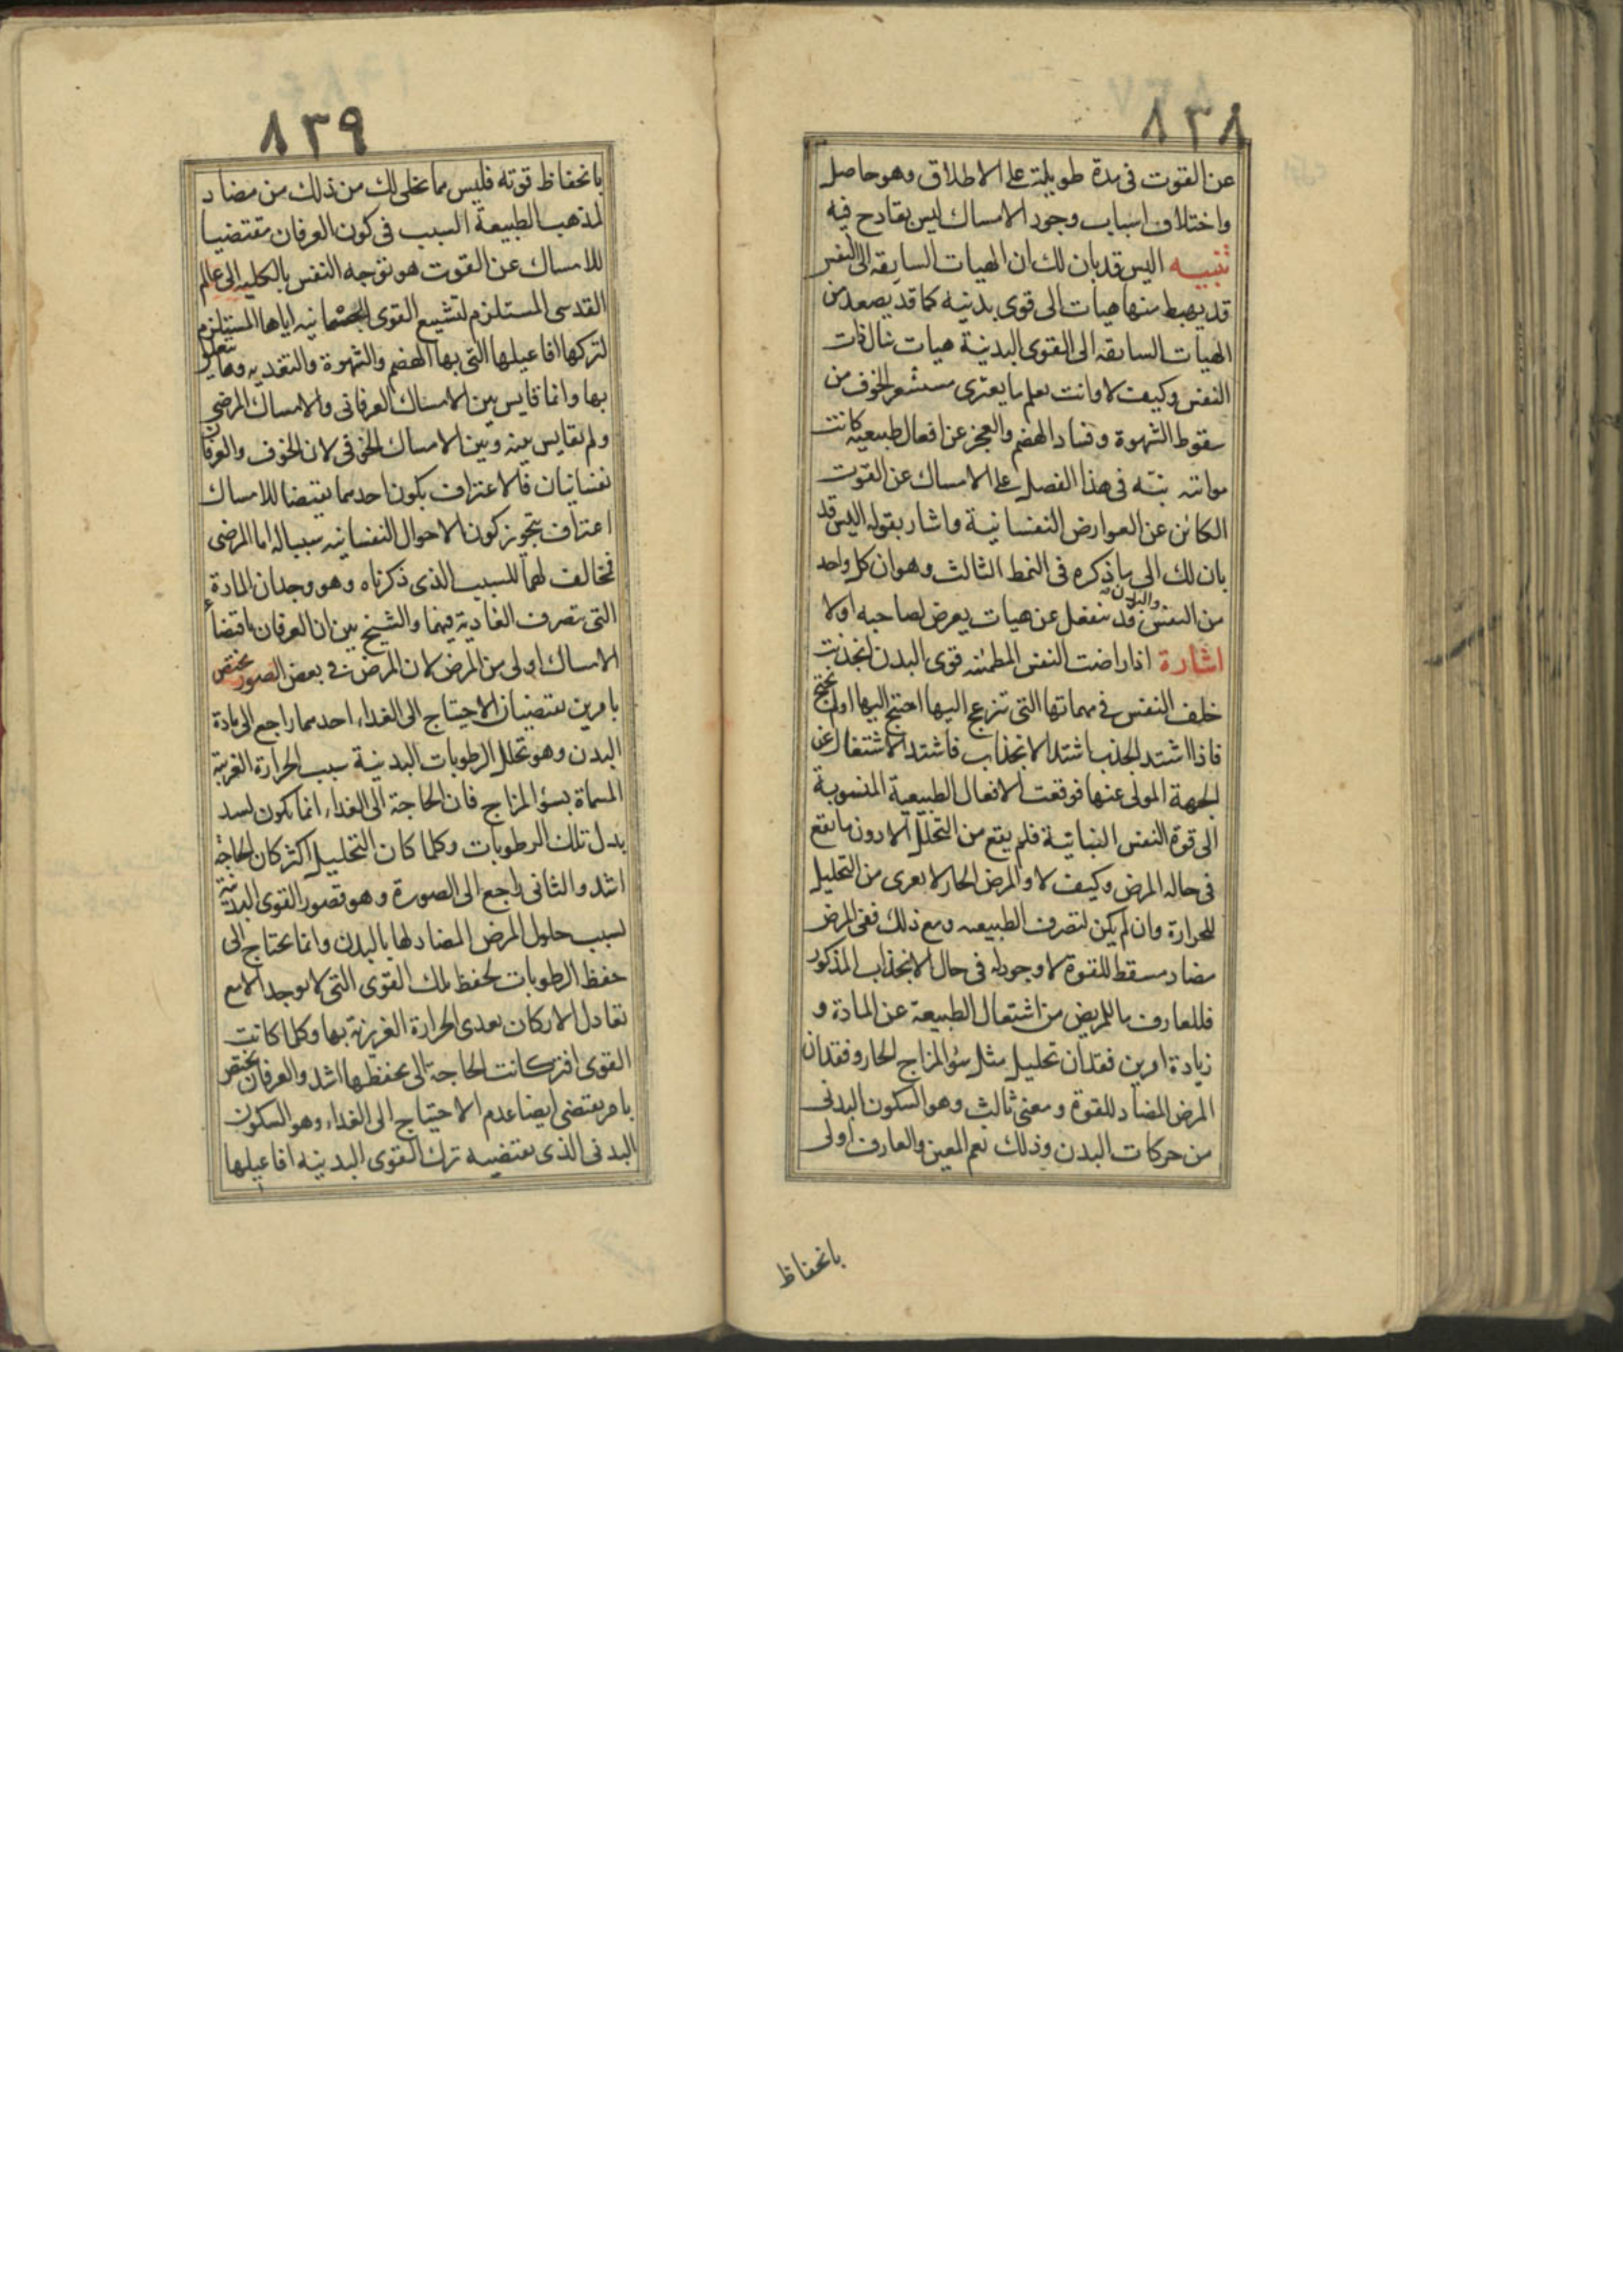 ٨٣٨
عن القوت فى مدة طويلة على الاطلاق وهو حاصل
واختلاف اسباب وجود الامساك ليس بقادح فيه
تنبيه اليس قد بان لك ان الهيات السابقه الى النفس
قد يهبط منها هيات الى قوى بدنيه كما قد يصعد من
الهيات السابقه الى القوى البدنية هيات ينال ذات
النفس وكيف لا وانت تعلم ما يعترى مستشعر الخوف من
سقوط الشهوة وفساد الهضم والعجز عن افعال طبيعيه كانت
مواتته نبّه فى هذا الفصل على الامساك عن القوت
الكائن عن العوارض النفسانية واشار بقوله اليس قد
بان لك الى ما ذكره فى النمط الثالث وهو ان كل واحد
من النفس والبدن قد ينفعل عن هيات يعرض لصاحبه اولا
اشارة اذا راضت النفس المطمئنه قوى البدن انجذبت
خلف النفس فى مهماتها التى تنزعج اليها احتيج اليها اولم يحتج
فاذا اشتد الجذب اشتد الانجذاب فاشتد الاشتغال عن
الجهة المولى عنها فوقفت الافعال الطبيعية المنسوبة
الى قوة النفس النباتية فلم يقع من التحلل الا دون ما يقع
فى حاله المرض وكيف لا والمرض الحار لا يعرى من التحليل
للحرارة وان لم يكن لتصرف الطبيعه ومع ذلك ففى المرض
مضاد مسقط للقوة لا وجود له فى حال الانجذاب المذكور
فللعارف ما للمريض من اشتغال الطبيعة عن المادة و
زيادة امرين فقدان تحليل مثل سؤ المزاج الحار وفقدان
المرض المضاد للقوة ومعنى ثالث وهو السكون البدنى
من حركات البدن وذلك نعم المعين والعارف اولى
بانحفاظ
٨٣٩
بانحفاظ قوته فليس ما يحكى لك من ذلك من مضاد
لمذهب الطبيعة السبب فى كون العرفان مقتضيا
للامساك عن القوت هو توجه النفس بالكليه الى عالم
القدسى المستلزم لتشييع القوى الجسمانيه اياها المستلزم
لتركها افاعيلها التى بها الهضم والشهوة والتغديه وما يتعلق
بها وانما قايس بين الامساك العرفانى والامساك المرضى
ولم يقايس بينه وبين الامساك الخوفى لان الخوف والعرفان
نفسانيان فالاعتراف بكون احدهما يقتضا للامساك
اعتراف بتجويز كون الاحوال النفسانيه سببا له اما المرضى
فمخالف لهما للسبب الذى ذكرناه وهو وجدان المادة
التى تصرف الغاديه فيها والشيخ بين ان العرفان باقتضاء
الامساك اولى من المرض لان المرض فى بعض الصور يختص
بامرين يقتضيان الاحتياج الى الغداء احدهما راجع الى مادة
البدن وهو تحلل الرطوبات البدنية بسبب الحرارة الغريبة
المسماة بسؤ المزاج فان الحاجة الى الغداء انما يكون لسد
بدل تلك الرطوبات وكلما كان التحليل اكثر كان الحاجة
اشد والثانى راجع الى الصورة وهو قصور القوى البدنية
لسبب حلول المرض المضاد لها بالبدن وانما يحتاج الى
حفظ الرطوبات لحفظ تلك القوى التى لا يوجد الا مع
تعادل الاركان بعدى الحرارة الغريزية بها وكلما كانت
القوى افتر كانت الحاجة الى يحفظها اشد والعرفان يختص
بامر يقتضى ايضا عدم الاحتياج الى الغداء وهو السكون
البدنى الذى يقتضيه ترك القوى البدنيه افاعيلها